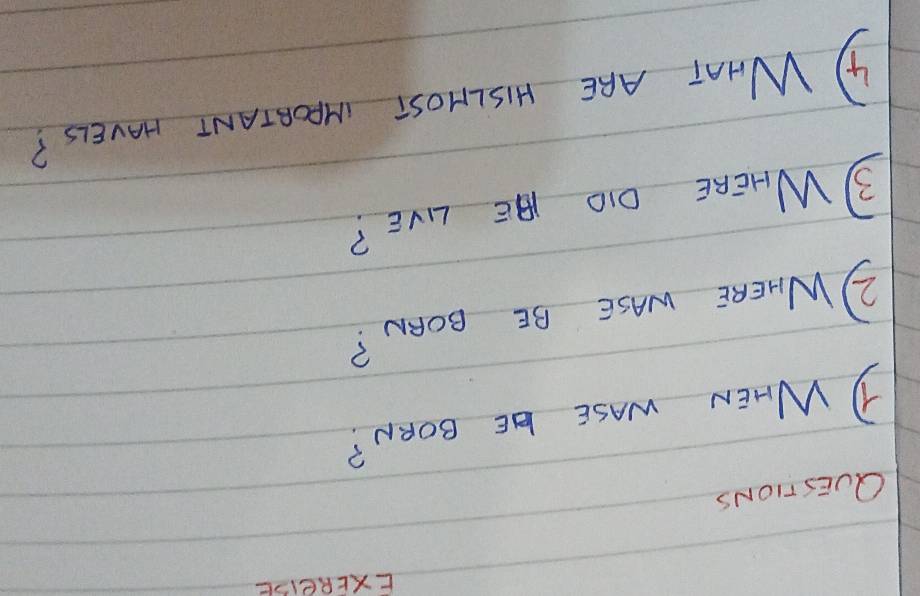 EXERCISE
QUESTIONS
1) WHEN WASE BE BORN?
2) WHERE WASE BE BORN?
3) WHERE DID HE LIVE?
4) WHAT ARE HISLMOST IMPORTANT HAVELS?